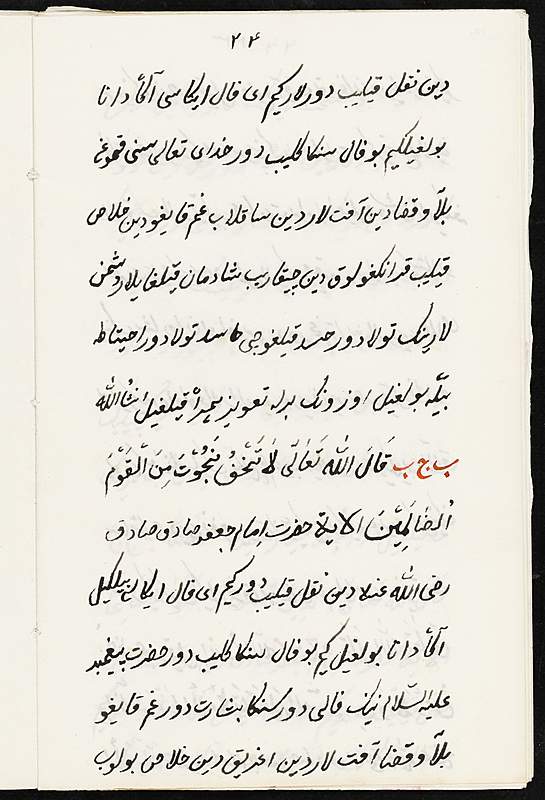 ۲۴
دین نقل قیلیب دورلار کیم ای فال ایکاسی آکا دانا
بولغیلکیم بو فال سنکا کلیب دور خدای تعالی سنی قموغ
بلا و قضا دین آفت لار دین ساقلاب غم قایغو دین خلاص
قیلیب قرانکغولوق دین چیقاریب شادمان قیلغای لار دشمن
لارینک تولا دور حسد قیلغوچی حاسد تولا دور احیتاطه
بیله بولغیل اوزونک برله تعویز همراه قیلغیل انشاالله
ب ج ب قَالَ اللهُ تَعَالَی لَا تَخَفْ نَجَوْتَ مِنَ الْقَوْمِ
الظَالِمِیْنَ الایة حضرت امام جعفر صادق صادق
رضی الله عنه دین نقل قیلیب دور کیم ای فال ایکاسی بیلکیل
آکا دانا بولغیل کیم بو فال سنکا کلیب دور حضرت پیغمبر
علیه السلام نینک فالی دور سنکا بشارت دور غم قایغو
بلا و قضا آفت لار دین اغریق دین خلاص بولوب